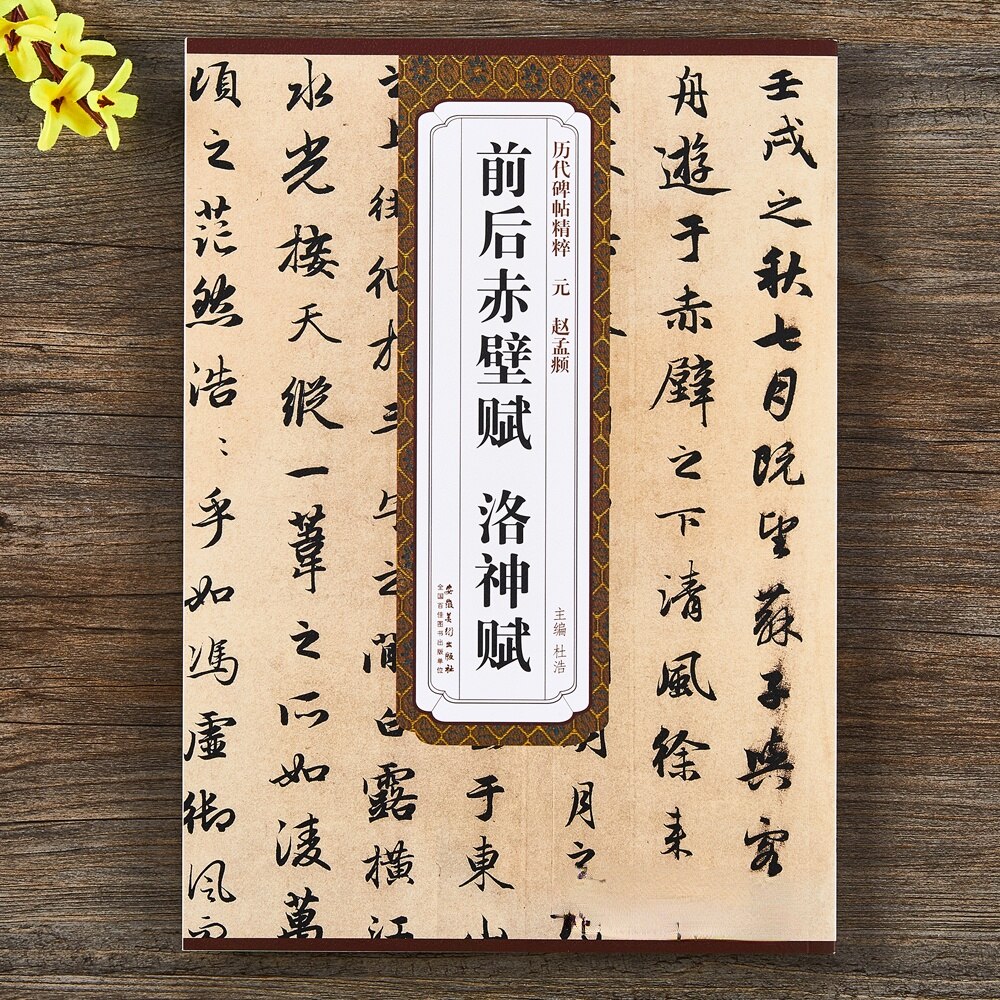 壬戌之秋七月既望蘇子與客
舟遊于赤壁之下清風徐来
月之
于東山
露橫江
水光接天縱一葦之所如凌萬
頃之茫然浩〻乎如馮虛御風而
历代碑帖精粹 元 赵孟𫖯
主编 杜浩
前后赤壁赋 洛神赋
安徽美術出版社
全国百佳图书出版单位